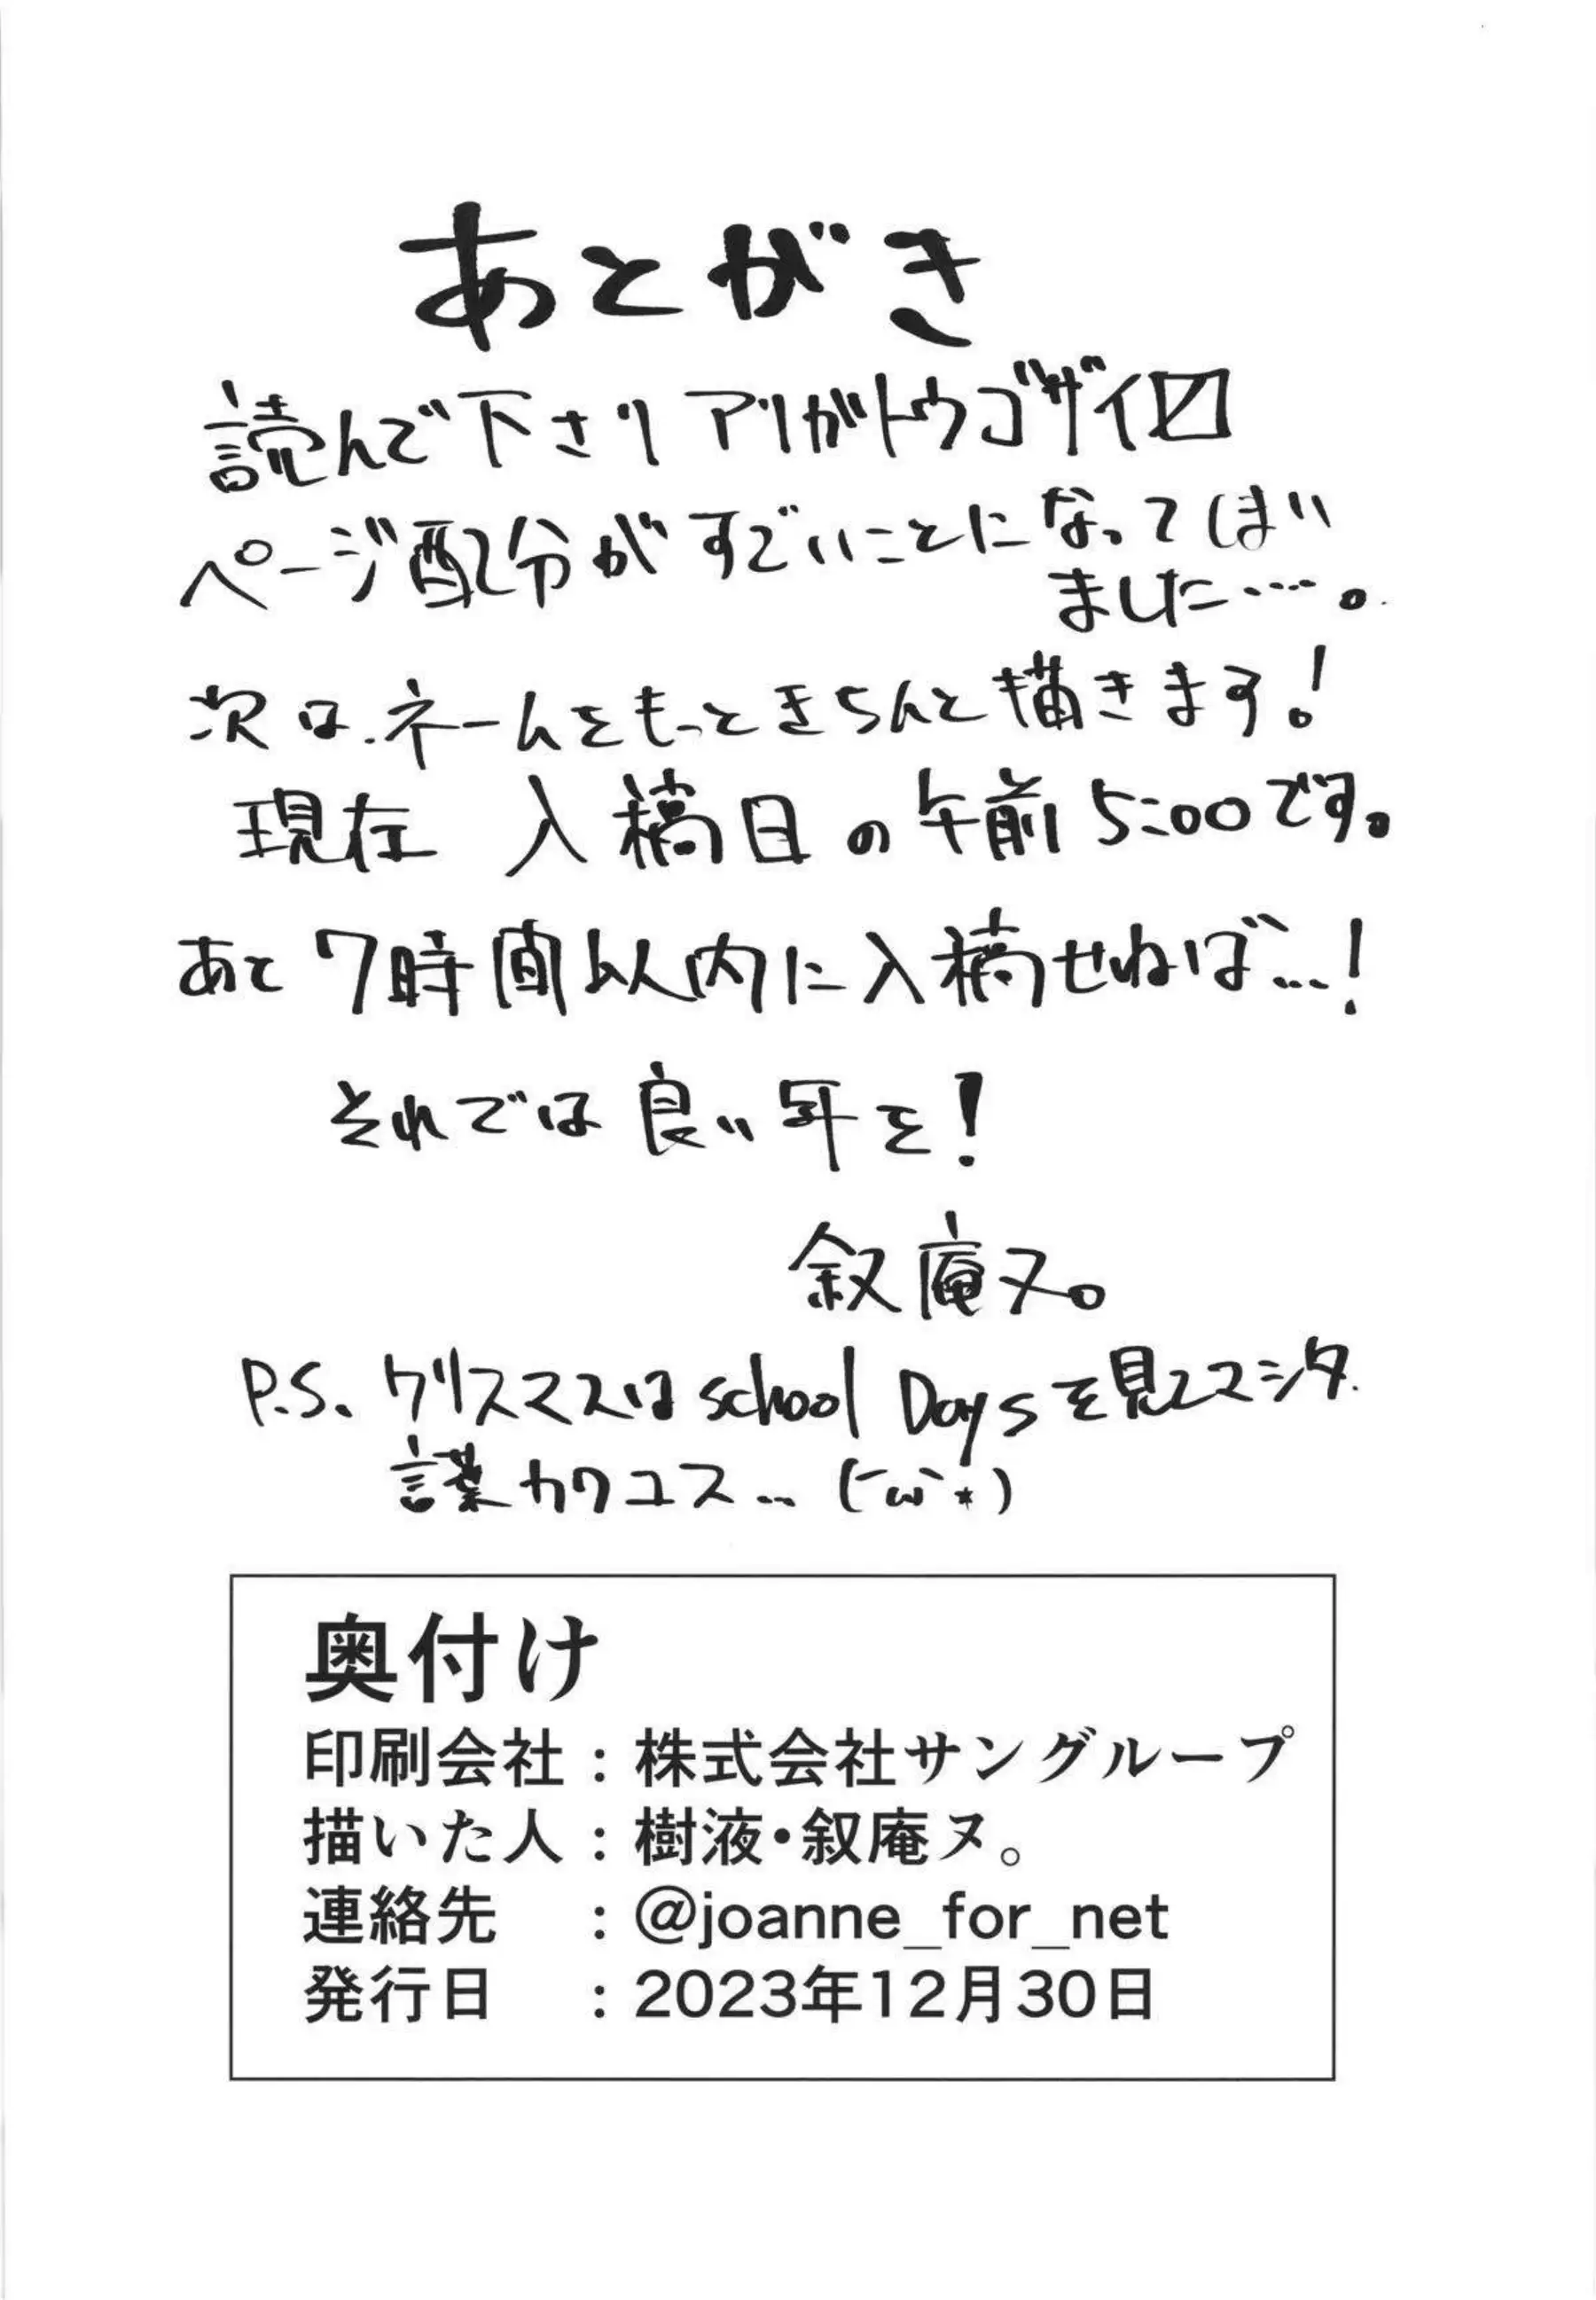 あとがき
読んで下さりアリがトウゴザイ〼
ページ配分がすごいことになってしまい
ました…。
次は、ネームをもっときちんと描きます!
現在 入稿日の午前5:00です。
あと7時間以内に入稿せねば…!
それでは良い年を!
叙庵ヌ。
P.S. クリスマスはschool Daysを見てマシタ.
言葉カワユス… (´ω`*)
奥付け
印刷会社:株式会社サングループ
描いた人:樹液・叙庵ヌ。
連絡先 :@joanne_for_net
発行日 :2023年12月30日